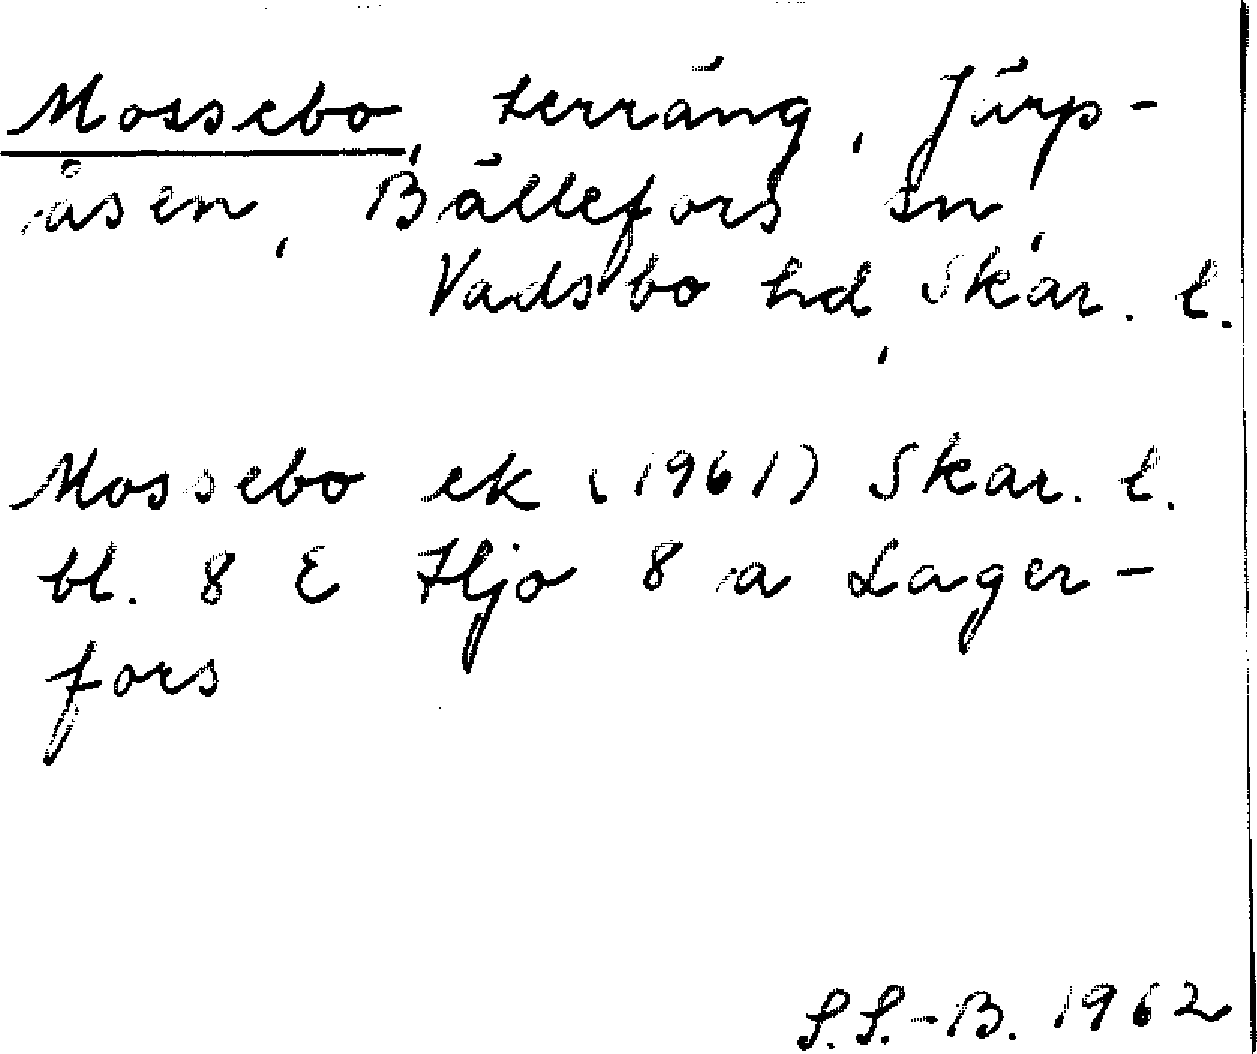 Mossebo, terräng, Järp-
åsen, Bällefors sn,
Vadsbo hd, Skar. l.
Mossebo ek (1961) Skar. l.
bl. 8 E Hjo 8 a Lager-
fors
S.S.-B. 1962